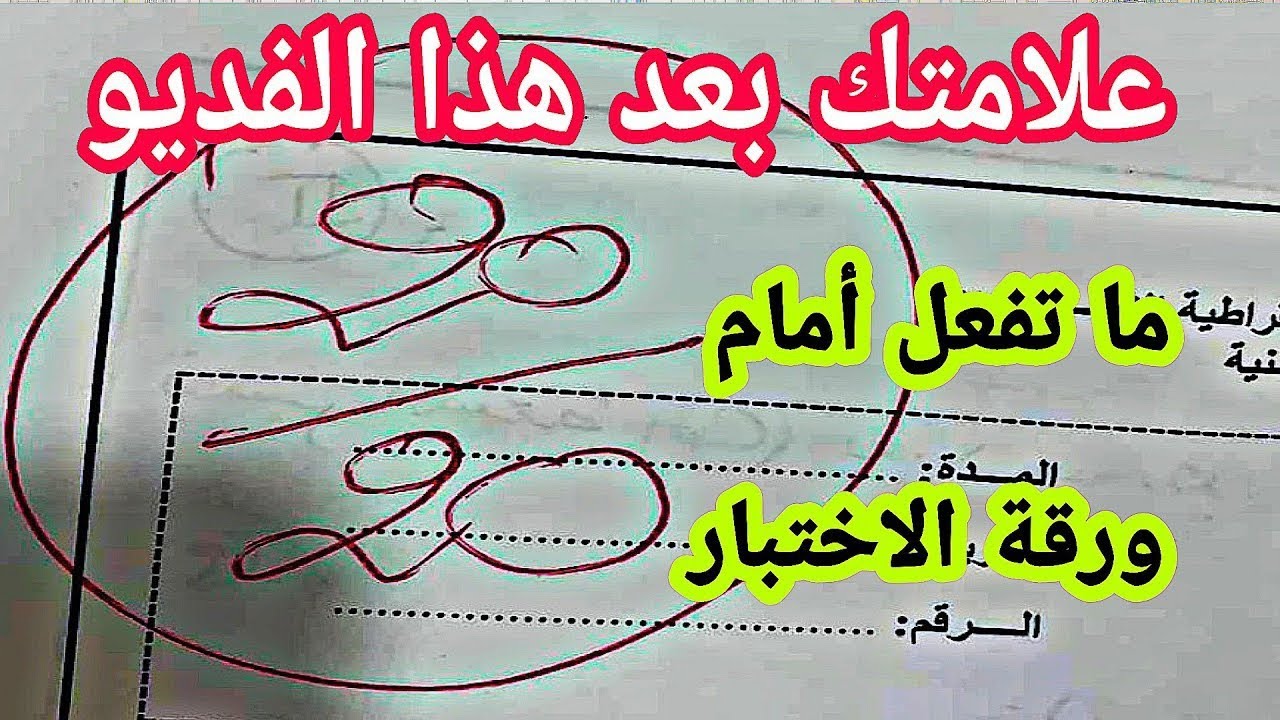 علامتك بعد هذا الفديو
20
20
ما تفعل أمام
ـراطية
ـنية
المــدة:
ورقة الاختبار
الــرقم: